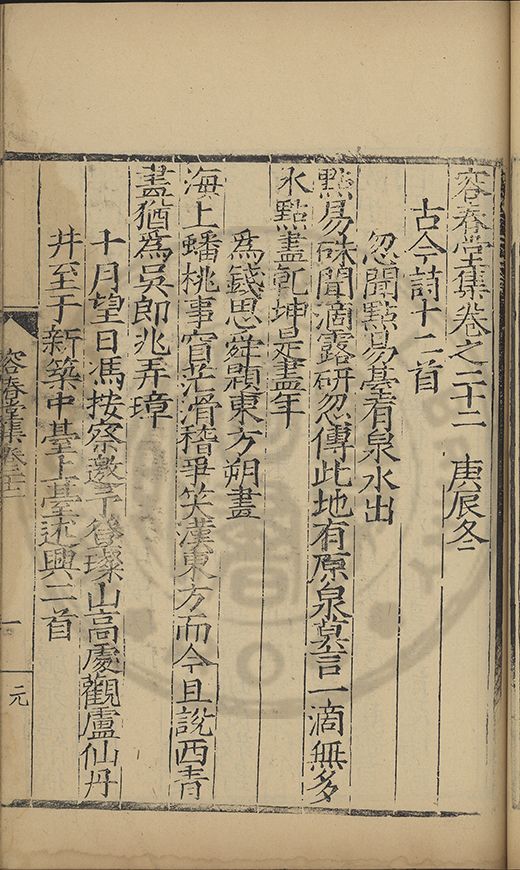 容春堂集卷之二十二 庚辰冬二
古今詩十二首
忽聞點易臺有泉水出
點易硃聞滴露研忽傳此地有原泉莫言一滴無多
水點盡乾坤是盡年
為錢思舜題東方朔畫
海上蟠桃事窅茫滑稽爭笑漢東方而今且說西青
畫猶為吳郎兆弄璋
十月望日馮按察邀予登璨山高處觀盧仙丹
井至于新築中臺上臺述興二首
容春堂集卷二十二
一
元